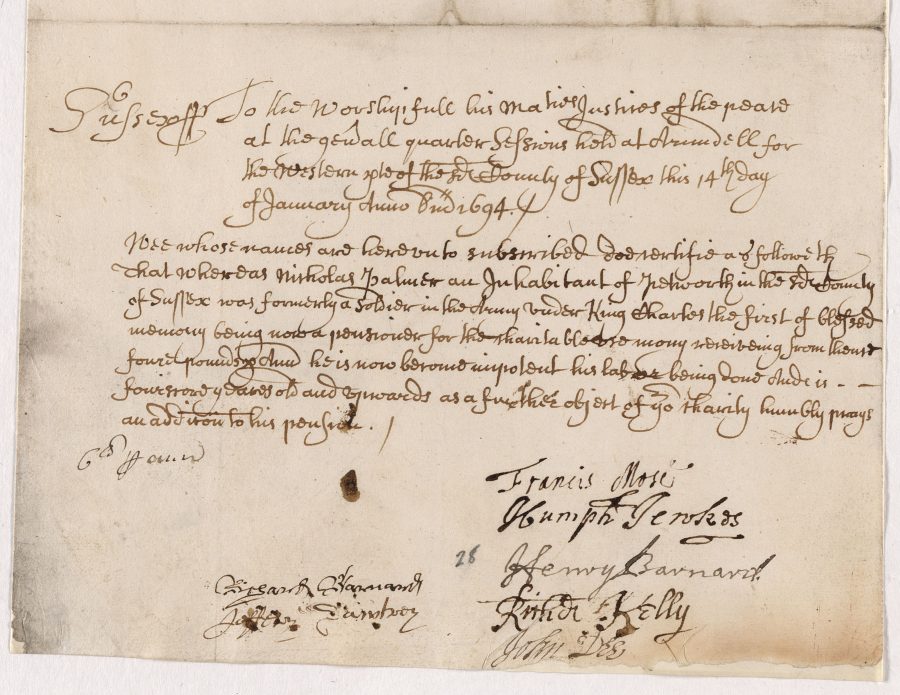 Sussex ff To the Worshipfull his Maties Justices of the peace
at the gen'all quarter Sessions held at Arundell for
the Western pte of the sd County of Sussex this 14th day
of January Anno Dni 1694.
Wee whose names are herevnto subscribed doe certifie as followeth
That whereas Nicholas Palmer an Inhabitant of Petworth in the sd County
of Sussex was formerly a Soldier in the Army vnder King Charles the first of blessed
memory being now a pensioner for the charitable vse mony receiveing from thence
foure pounds p Ann he is now become impotent his labor being done And is - -
fourscore yeares old and vpwards as a further object of yor charity humbly prays
an addicon to his pension.
6d p ann
Francis Mose
Humph Jenokes
28
Henry Barnard
Richard Barnard
Richd Kelly
John Dee